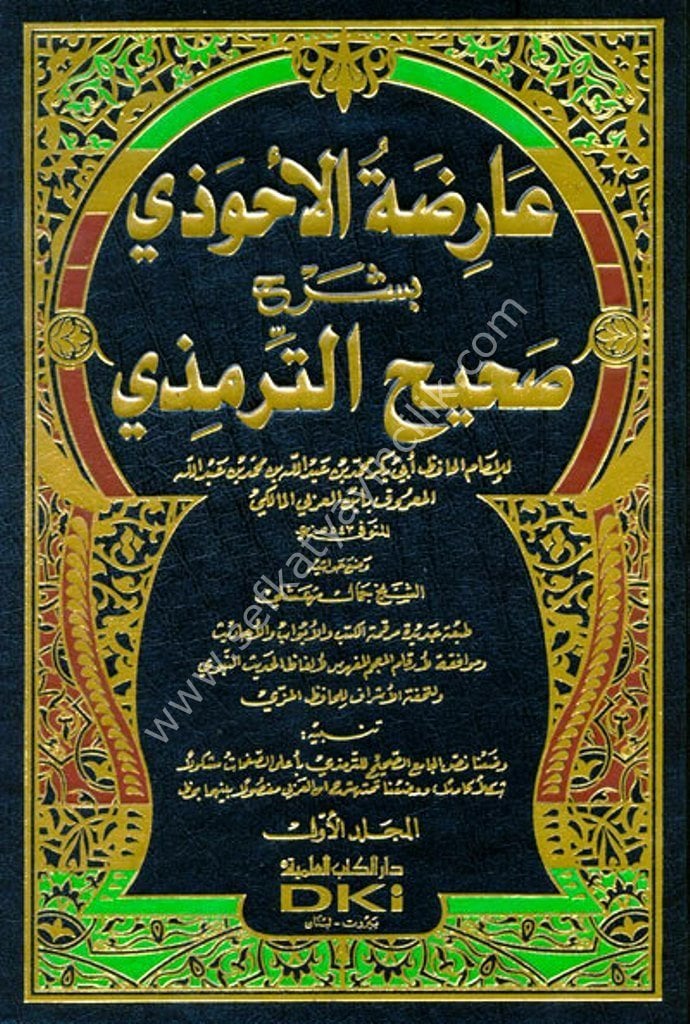 عَارِضَةُ الأحْوَذي
بشَرْح
صَحيح التِّرمِذي
للإمَام الحافظ أبي بكر محمّد بن عبد اللّه بن محمّد بن عبد اللّه
المعروف بابن العربي المالكي
المتوفى ٥٤٣ هـ
وضع حواشيه
الشيخ جمال مرعشلي
طبعة جديدة مرقمة الكتب والأبواب والأحاديث
وموافقة لأرقام المعجم المفهرس لألفاظ الحديث النبوي
ولتحفة الأشراف للحافظ المزي
تنبيه:
وضعنا نصّ الجامع الصّحيح للترمذي بأعلى الصّفحات مشكولاً
شكلاً كاملاً، ووضعنا تحته شرح ابن العربي مفصولاً بينهما بخط
المجلد الأول
دار الكتب العلمية
DKi
بيروت - لبنان
www.sefkatyayincilik.com